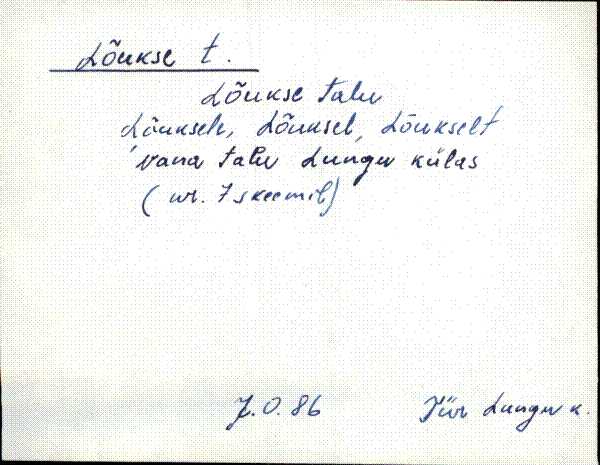 Lõukse t.
Lõukse talu
Lõuksele, Lõuksel, Lõukselt
vana talu Lungu külas
(nr. 7 skeemil)
J. O. 86 Tür Lungu k.